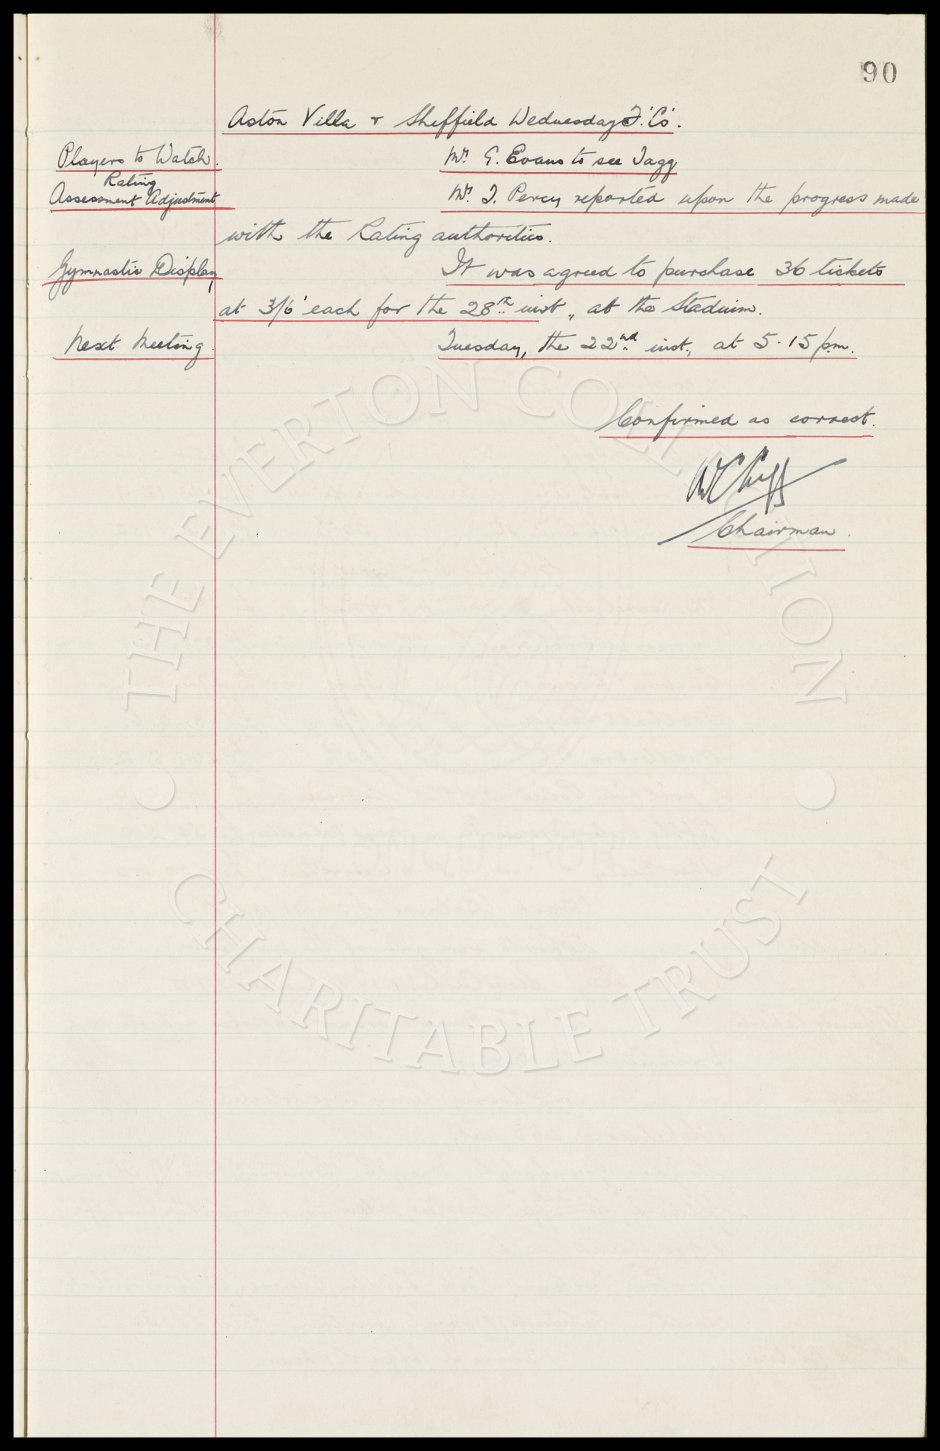 90
Aston Villa & Sheffield Wednesday F.'Co'.
Players to Watch. Mr. G. Evans to see Tagg
Rating
Assessment Adjustment Mr. T. Percy reported upon the progress made
with the Rating authorities.
Gymnastic Display It was agreed to purchase 36 tickets
at 3/6' each for the 28th inst., at the Stadium.
Next Meeting. Tuesday, the 22nd inst., at 5.15 p.m.
Confirmed as correct.
Chairman.
THE EVERTON COLLECTION
CHARITABLE TRUST